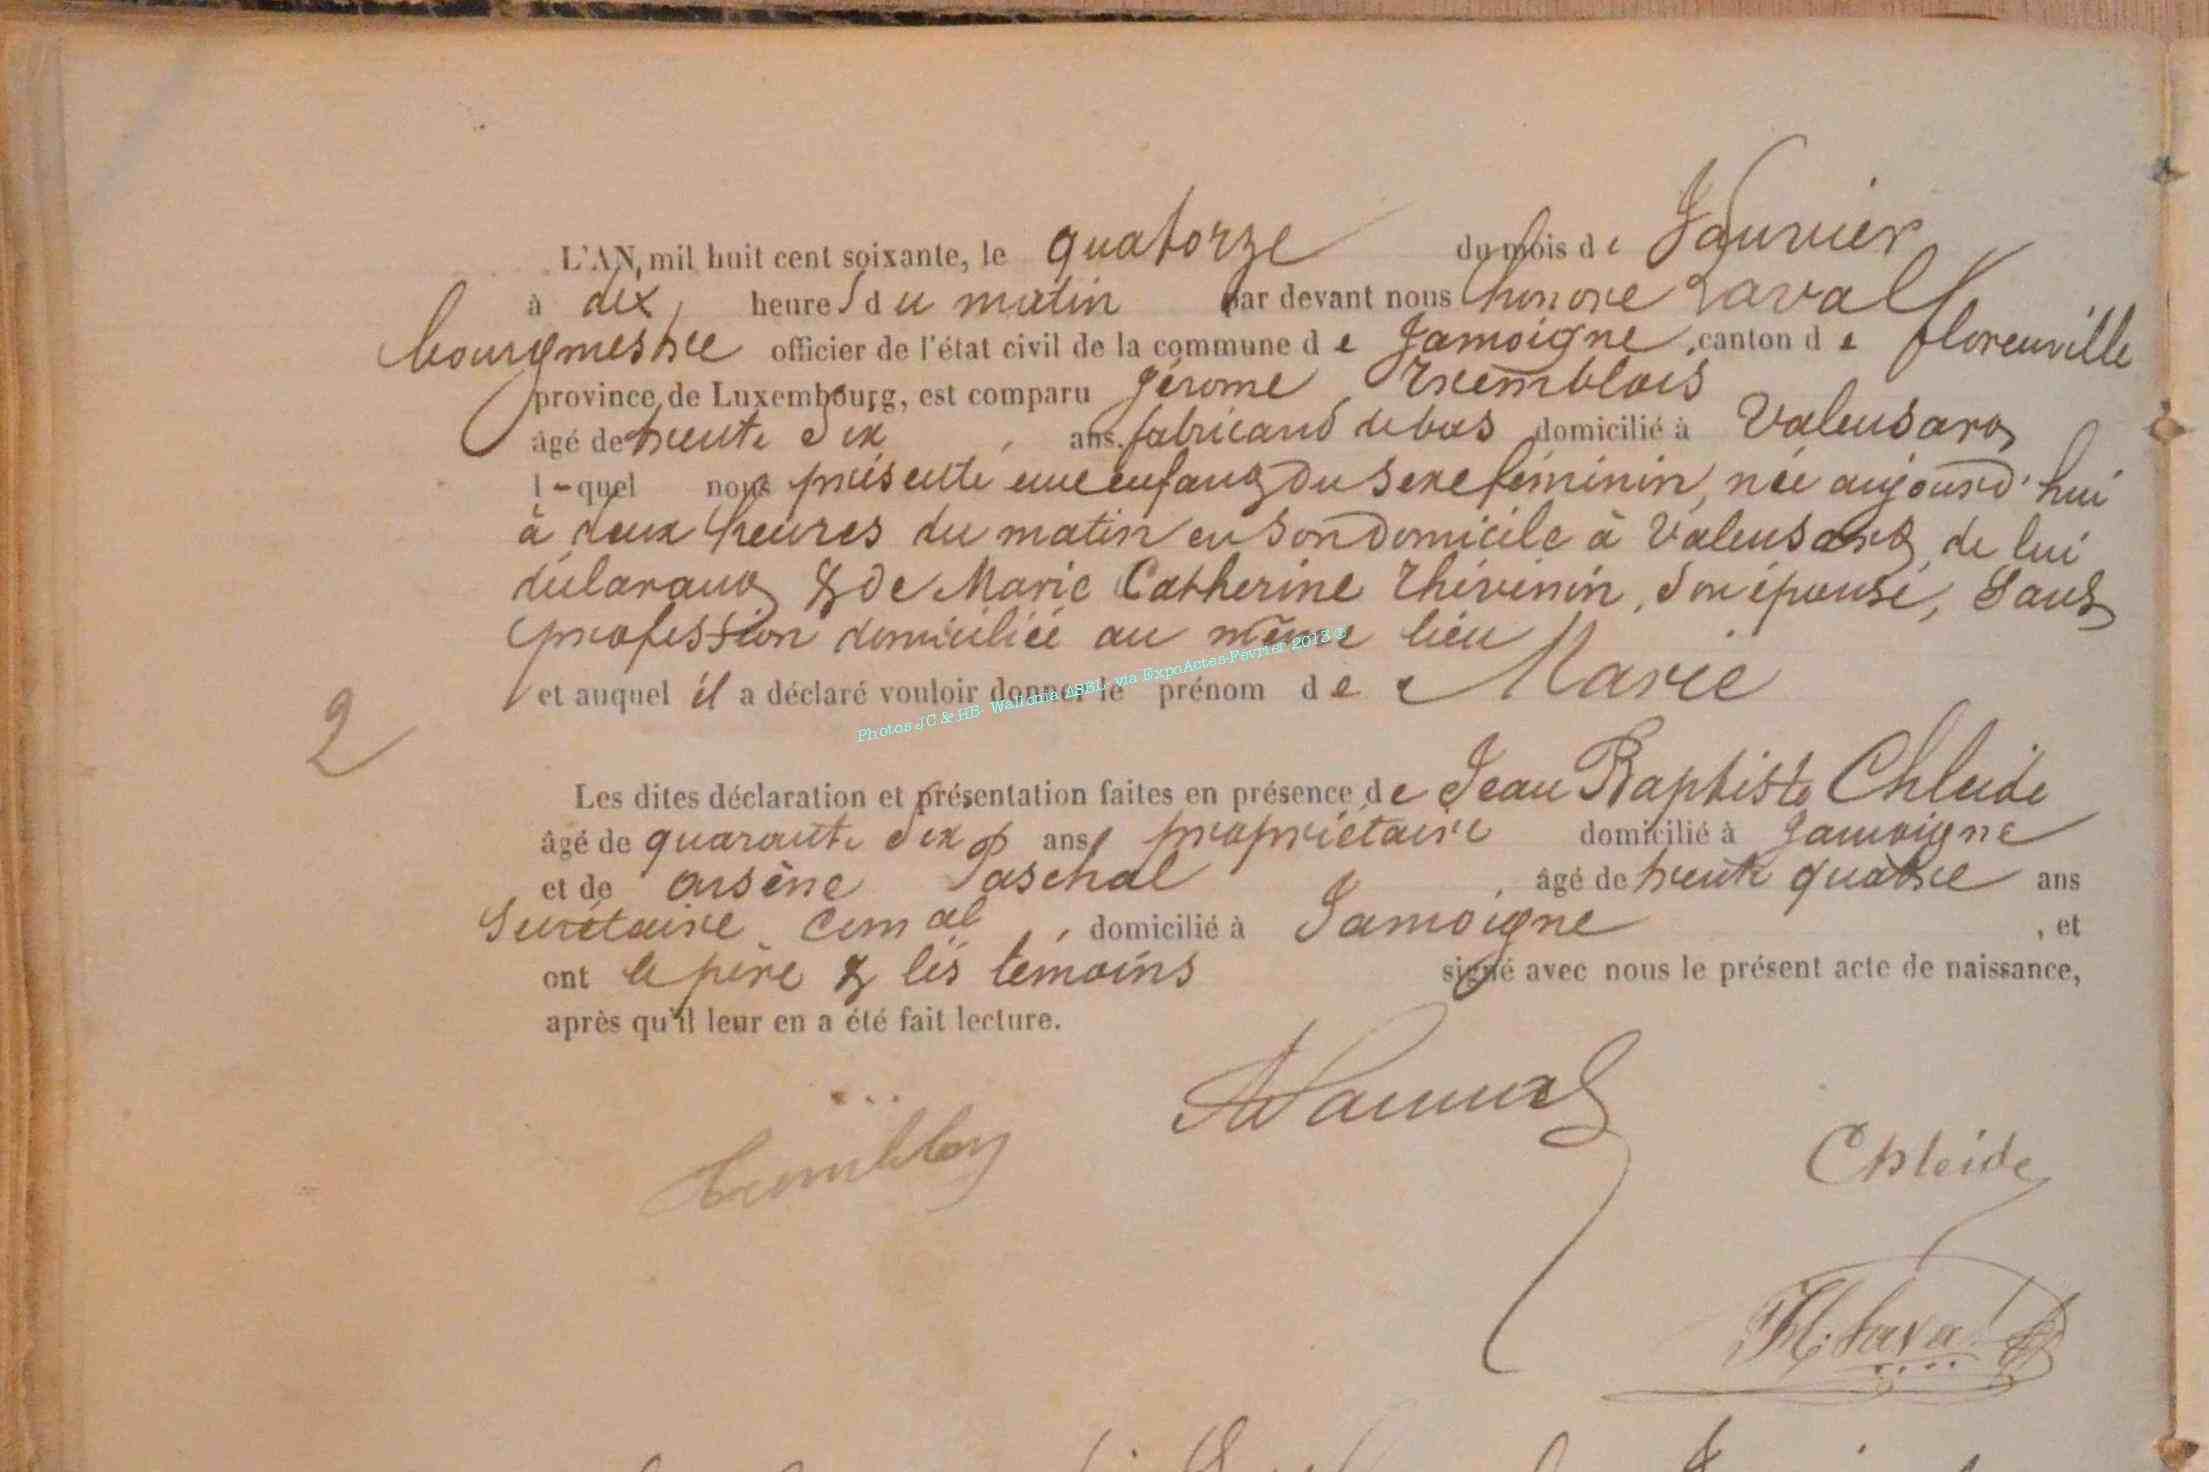 L'AN, mil huit cent soixante, le quatorze du mois de Janvier
à dix heures du matin par devant nous honoré Laval
bourgmestre officier de l'état civil de la commune de Jamoigne, canton de florenville
province de Luxembourg, est comparu Jérome Tremblois
âgé de trente six ans, fabricant de bas domicilié à Valensart
l-quel nous présenté une enfant du sexe féminin, née aujourd'hui
à deux heures du matin en son domicile à Valensart, de lui
déclarant & de Marie Catherine Thévinin, son épouse, sans
profession domiciliée au même lieu
et auquel il a déclaré vouloir donner le prénom de Marie
Photos JC & HB- Wallonia ASBL- via ExpoActes-Février 2013
2
Les dites déclaration et présentation faites en présence de Jean Baptiste Chleide
âgé de quarante six ans, propriétaire domicilié à Jamoigne
et de arsène Paschal, âgé de trente quatre ans
Secrétaire comal, domicilié à Jamoigne, et
ont le père & les témoins signé avec nous le présent acte de naissance,
après qu'il leur en a été fait lecture.
Chleide
H. Laval